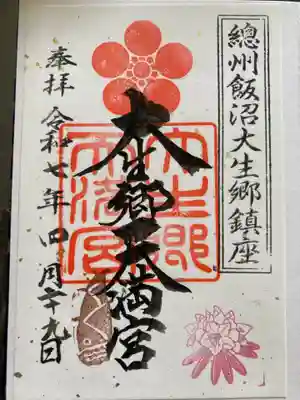 總州飯沼大生郷鎮座
大生郷天満宮
奉拝 令和七年四月二十九日